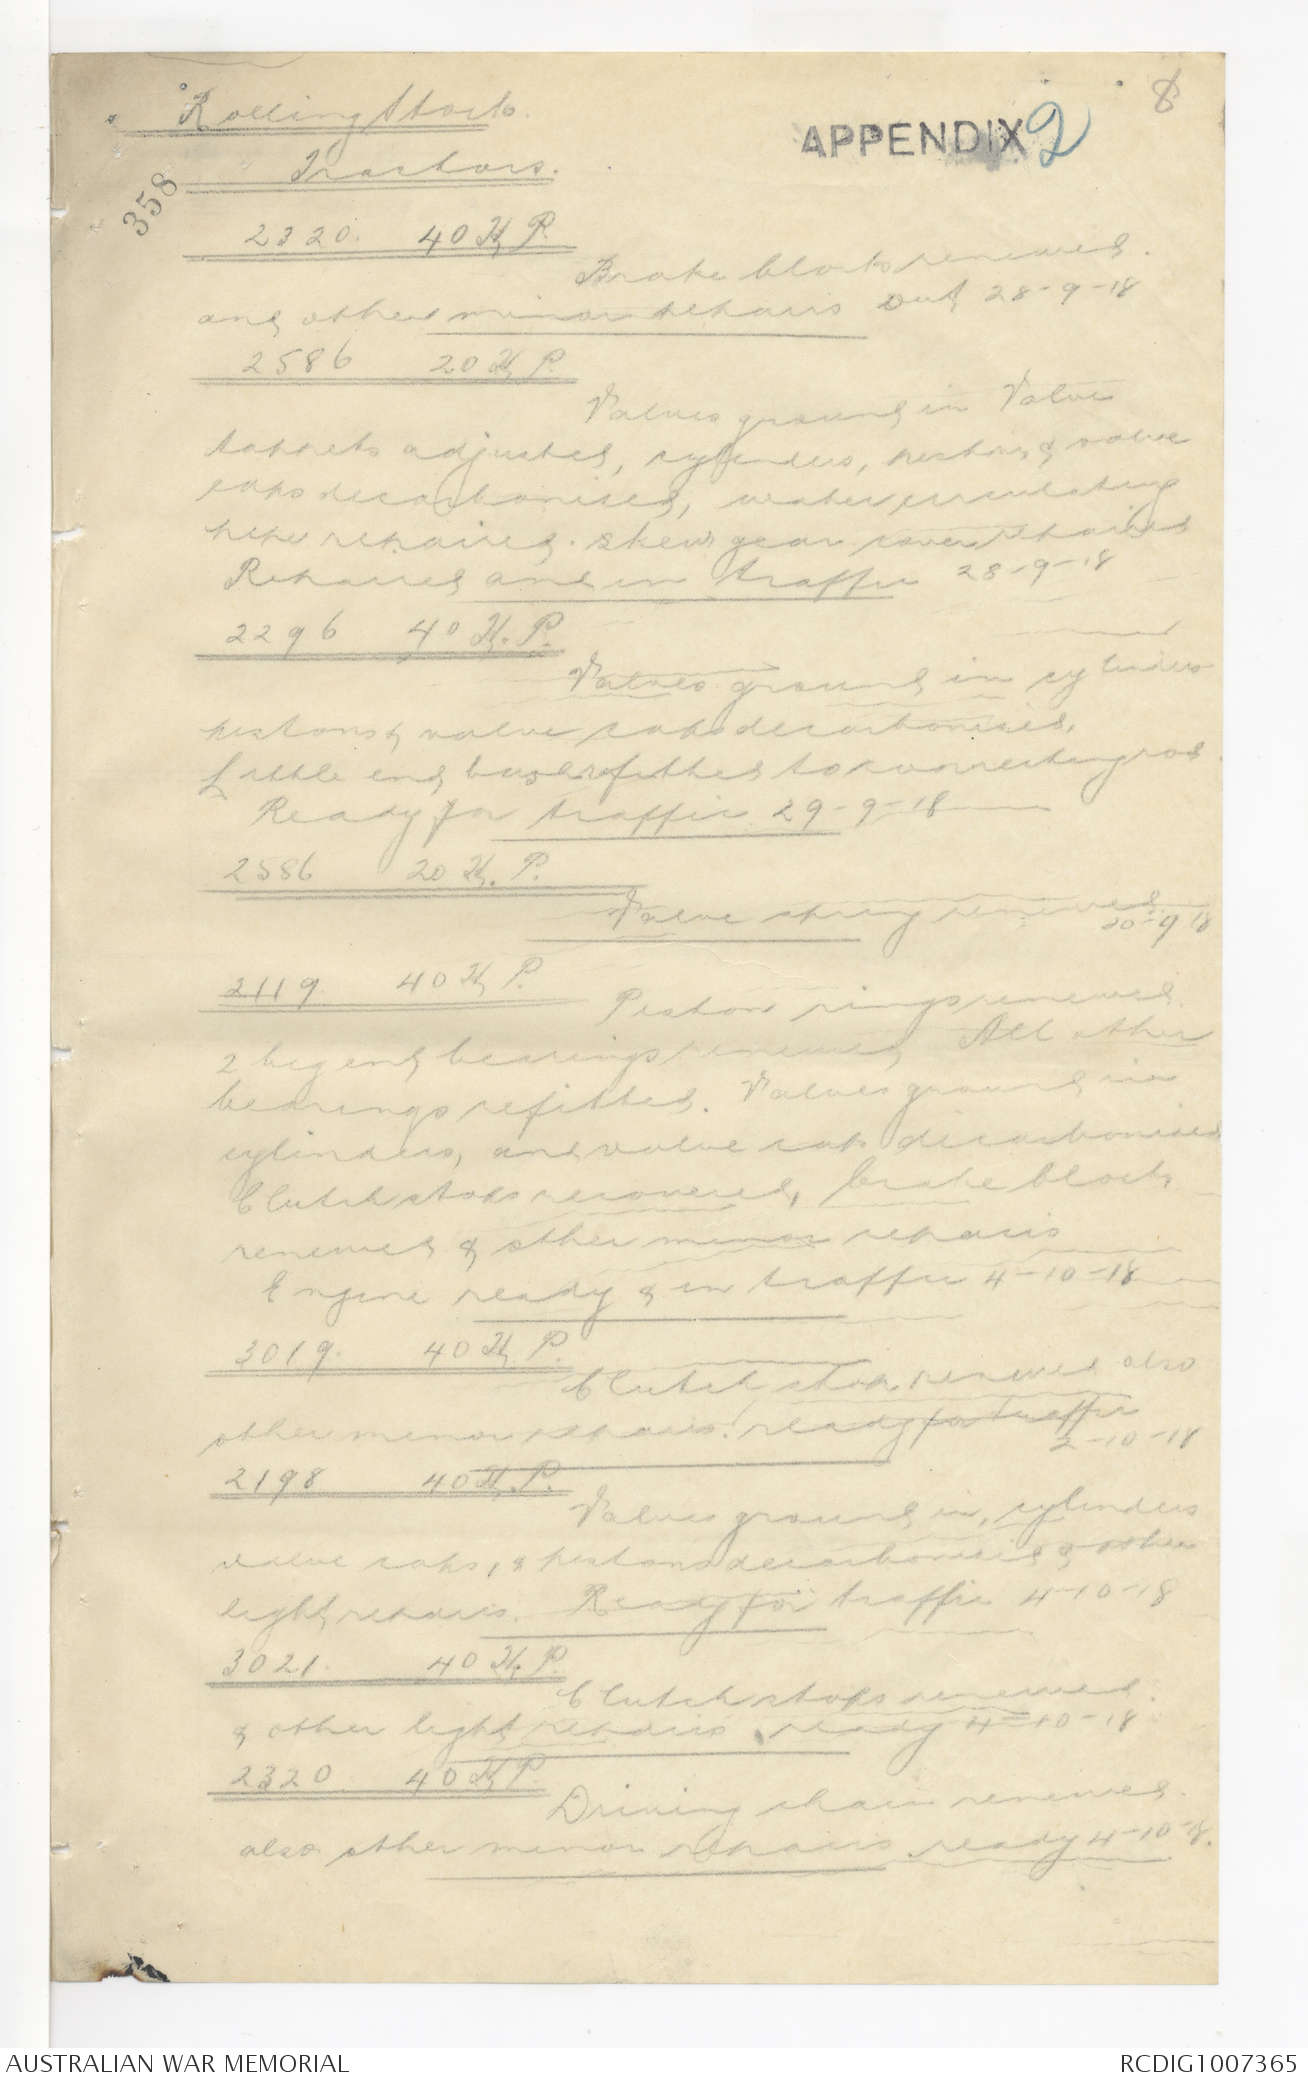 8
Rolling Stock.
APPENDIX 2
Tractors.
358
2320. 40 H.P.
Brake blocks renewed.
and other minor repairs Out 28-9-18
2586 20 H.P.
Valves ground in Valve
tappets adjusted, cylinders, pistons & valve
caps decarbonised, water circulating
pipe repaired. Skew gear cover repaired
Repaired and in traffic 28-9-18
2296 40 H.P.
Valves ground in cylinders
pistons & valve caps decarbonised,
Little end bush refitted to connecting rod.
Ready for traffic 29-9-18
2586 20 H.P.
Valve spring renewed.
20-9-18
2119. 40 H.P.
Piston rings renewed.
2 big end bearings renewed All other
bearings refitted. Valves ground in
cylinders, and valve caps decarbonised
Clutch stops recovered, brake blocks
renewed & other minor repairs
Engine ready & in traffic 4-10-18
3019. 40 H.P.
Clutch stops renewed also
other minor repairs. ready for traffic
2-10-18
2198 40 H.P.
Valves ground in, cylinders
valve caps, & pistons decarbonised & other
light repairs. Ready for traffic 4-10-18
3021. 40 H.P.
Clutch stops renewed.
& other light repairs, ready 4-10-18
2320 40 H.P.
Driving chain renewed.
also other minor repairs ready 4-10-18.
AUSTRALIAN WAR MEMORIAL
RCDIG1007365